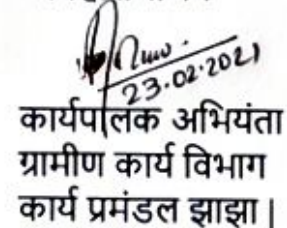 23.02.2021
कार्यपालक अभियंता
ग्रामीण कार्य विभाग
कार्य प्रमंडल झाझा|